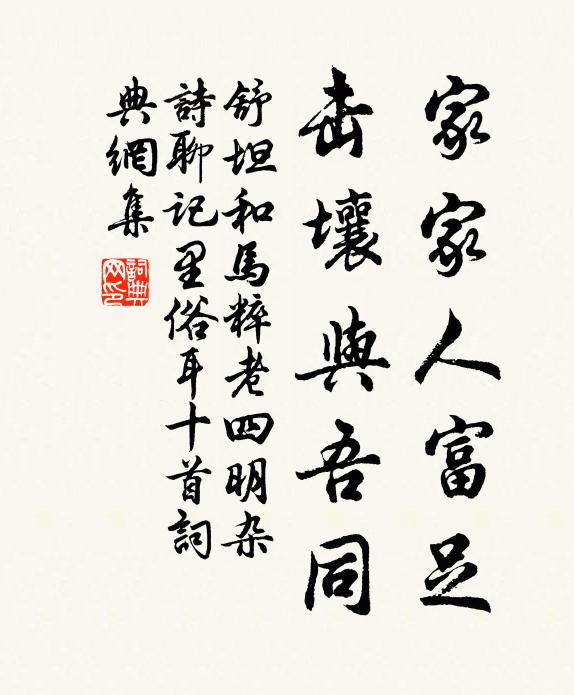 家家人富足
击壤與吾同
舒坦和馬粹老四明杂
詩聊記里俗耳十首詞
典網集
詞典
网印